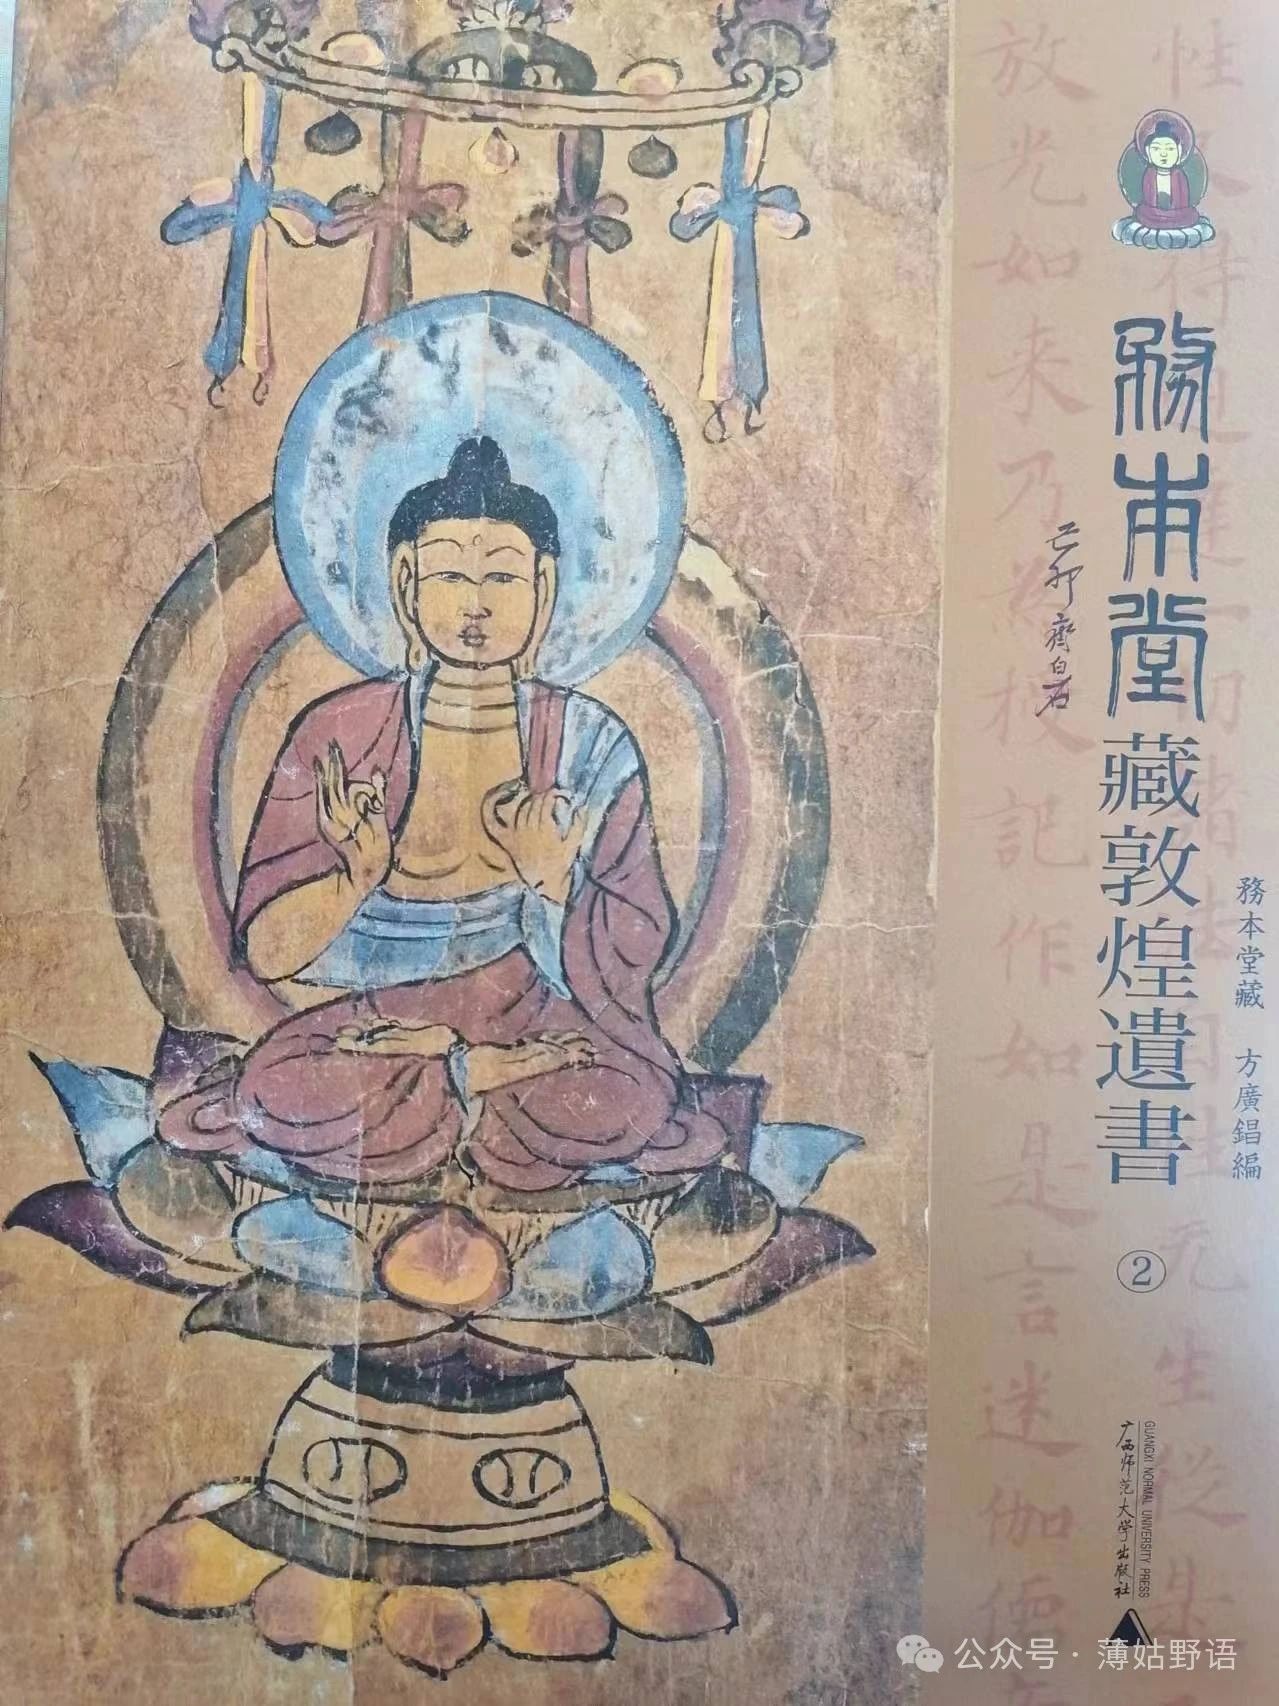 務本堂藏敦煌遺書
②
己卯 齊白石
務本堂藏 方廣錩編
放光如来乃為授記作如是言迷伽儒
广西师范大学出版社
GUANGXI NORMAL UNIVERSITY PRESS
公众号·薄姑野语